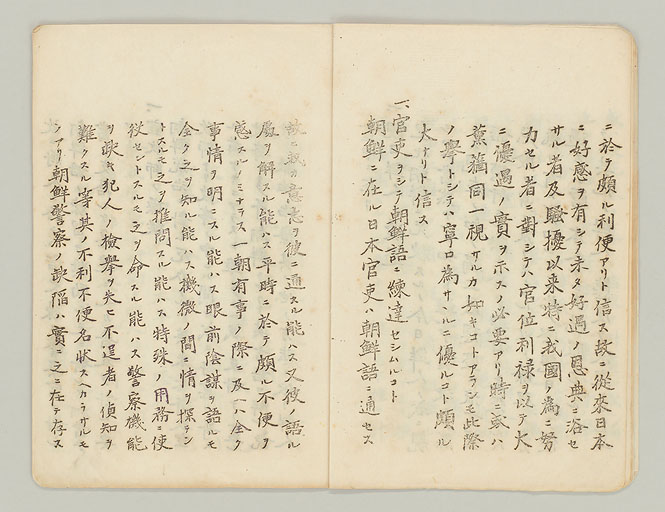 ニ於テ頗ル利便アリト信ス故ニ從來日本
ニ好感ヲ有シテ未タ好過ノ恩典ニ浴セ
サル者及騷擾以来特ニ我國ノ為ニ努
力セル者ニ對シテハ官位利禄ヲ以テ大
ニ優遇ノ實ヲ示スノ必要アリ時ニ或ハ
薫蕕同一視サルカ如キコトアランモ此際
ノ擧トシテハ寧ロ為サヽルニ優ルコト頗ル
大ナリト信ス
一、官吏ヲシテ朝鮮語ニ練達セシムルコト
朝鮮ニ在ル日本官吏ハ朝鮮語ニ通セス
故ニ我カ意志ヲ彼ニ通スル能ハス又彼ノ語ル
處ヲ解スル能ハス平時ニ於テ頗ル不便ヲ
感スルノミナラス一朝有事ノ際ニ及ヘハ全ク
事情ヲ明ニスル能ハス眼前陰謀ヲ語ルモ
全ク之ヲ知ル能ハス機微ノ間ニ情ヲ探ラン
トスルモ之ヲ推問スル能ハス特殊ノ用務ニ使
役セントスルモ之ヲ命スル能ハス警察機能
ヲ缺キ犯人ノ檢擧ヲ失ヒ不逞者ノ偵知ヲ
難クスル等其ノ不利不便名状スヘカラサルモ
ノアリ朝鮮警察ノ缺陥ハ實ニ之ニ在テ存ス